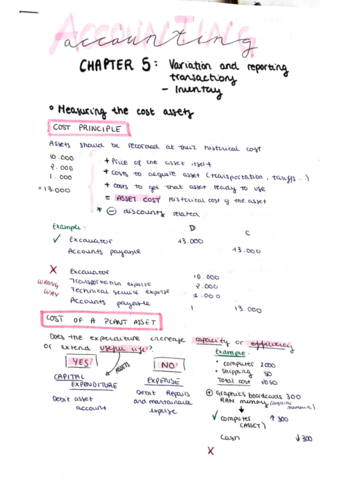 ACCOUNTING
accounting
CHAPTER 5: Variation and reporting
transactions
- Inventory
Measuring the cost assets
COST PRINCIPLE
Assets should be recorded at their historical cost
10.000 + Price of the asset itself
2.000 + costs to acquire asset (transportation, tariffs...)
1.000 + costs to get that asset ready to use
=13.000 = ASSET COST Historical cost of the asset
* - discounts related
Example: D C
✓ Excavator 13.000
Accounts payable 13.000
X Excavator 10.000
WRONG Transportation expense 2.000
WAY Technical service expense 1.000
Accounts payable 13.000
COST OF A PLANT ASSET
Does the expenditure increase capacity or efficiency
or extend useful life?
YES ASSETS NO
CAPITAL EXPENDITURE
EXPENSE
Debit asset account
Debit Repairs and maintenance expense
Example:
• computer 2000
• shipping 50
Total cost 2050
+ Graphics boardcards 300
RAM memory
✓ computer ↑300
(ASSET)
Cash ↓300
X